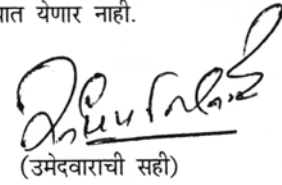 यात येणार नाही.
(उमेदवाराची सही)